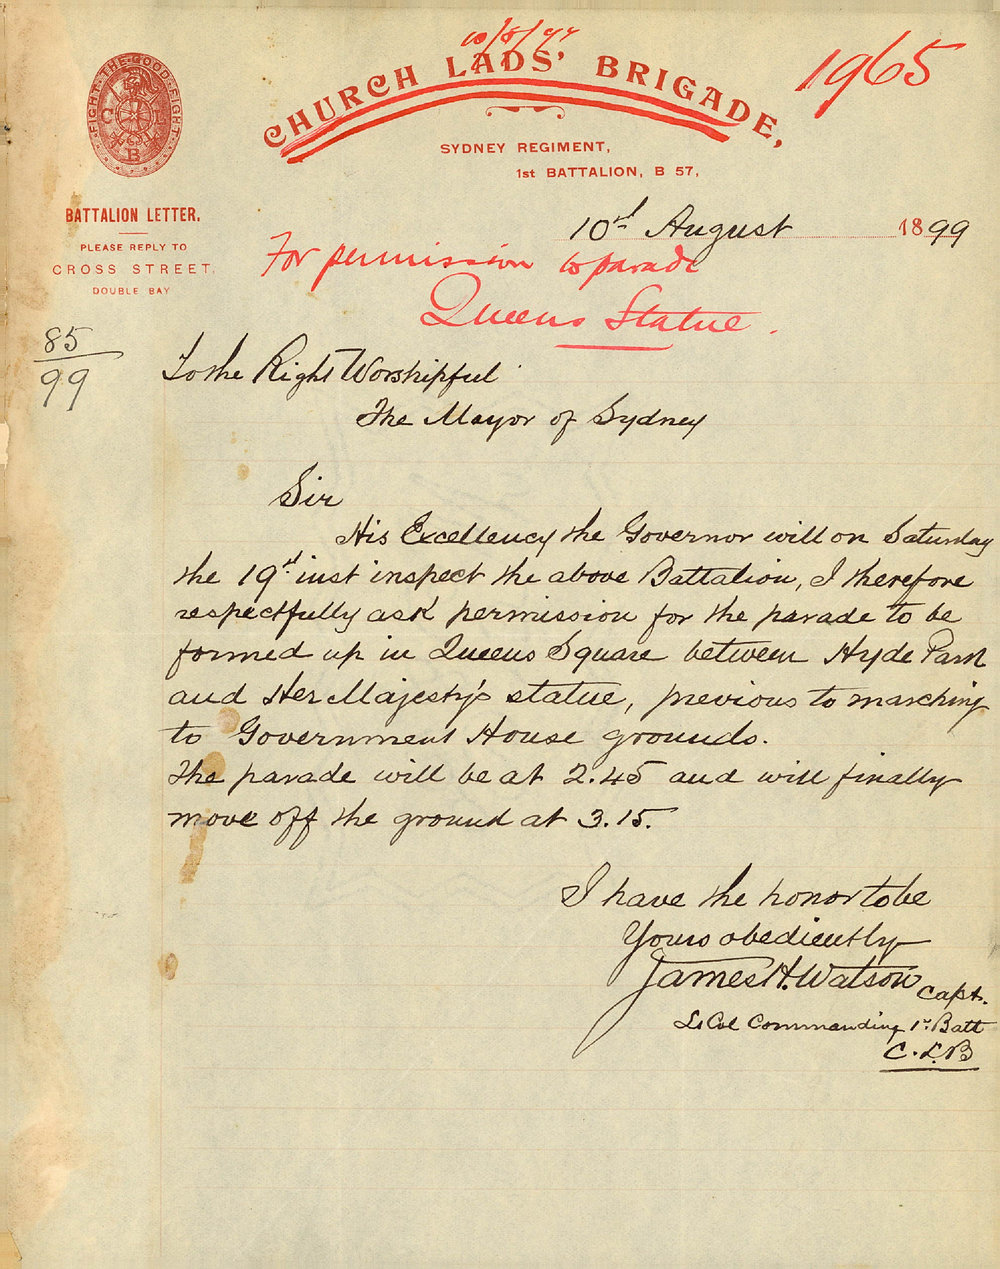 10/8/99
1965
CHURCH LADS' BRIGADE,
SYDNEY REGIMENT,
1st BATTALION, B 57,
FIGHT·THE·GOOD·FIGHT
C L B
BATTALION LETTER.
PLEASE REPLY TO
CROSS STREET,
DOUBLE BAY
10th August 1899
For permission to parade
Queens Statue.
85
99
To the Right Worshipful
The Mayor of Sydney
Sir
His Excellency the Governor will on Saturday
the 19th inst inspect the above Battalion, I therefore
respectfully ask permission for the parade to be
formed up in Queens Square between Hyde Park
and Her Majesty's statue, previous to marching
to Government House grounds.
The parade will be at 2.45 and will finally
move off the ground at 3.15.
I have the honor to be
Yours obediently
James H. Watson Capt.
Lt Col Commanding 1st Batt
C.L.B